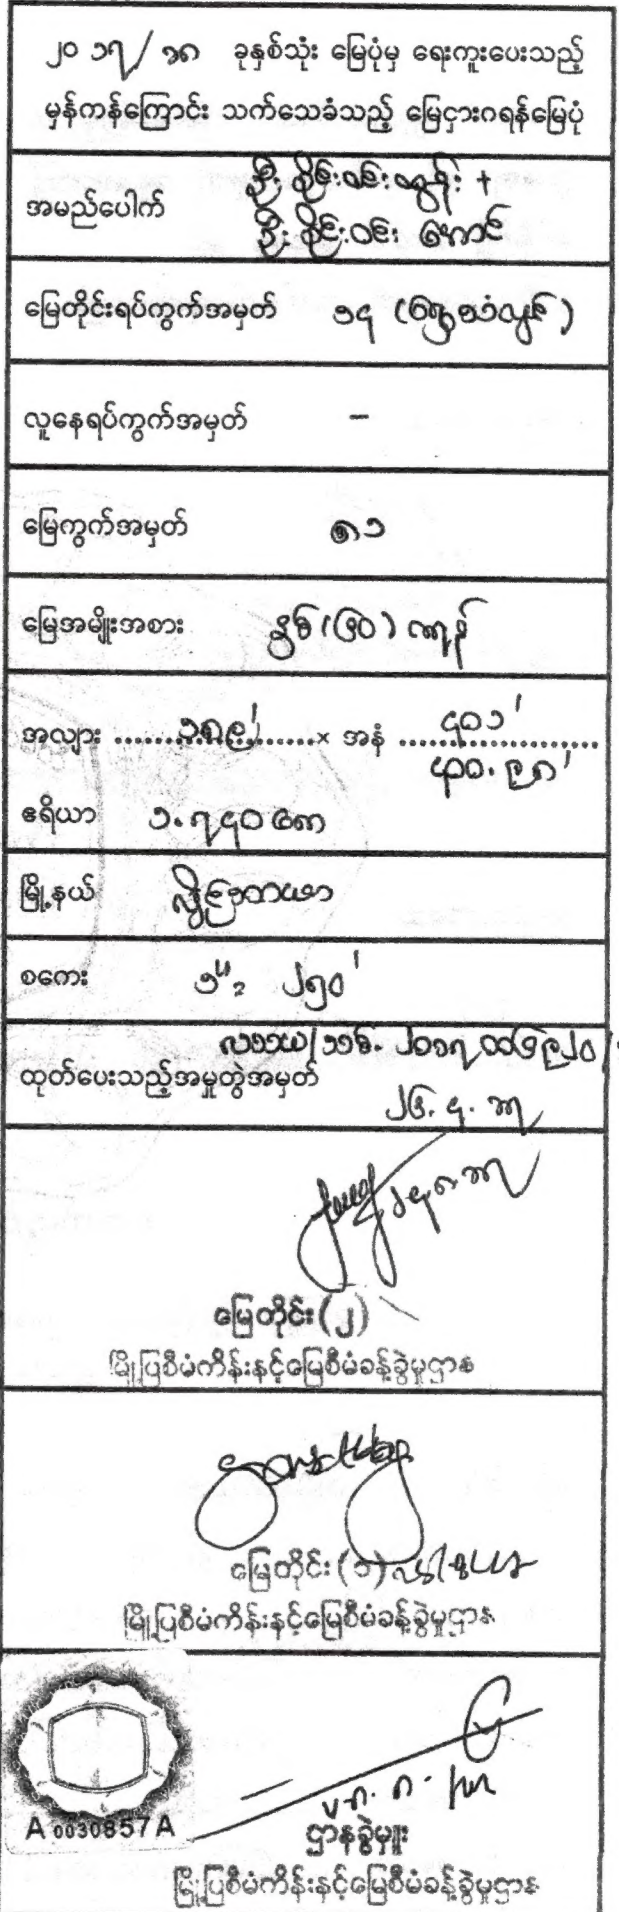 ၂၀၁၇/၁၈ ခုနှစ်သုံး မြေပုံမှ ရေးကူးပေးသည့်
မှန်ကန်ကြောင်း သက်သေခံသည့် မြေငှားဂရန်မြေပုံ
ဦးစိုင်းဝင်းထွန်း +
အမည်ပေါက်
ဦးစိုင်းဝင်းအောင်
မြေတိုင်းရပ်ကွက်အမှတ် ၁၄ (ရွှေသံလွင်)
လူနေရပ်ကွက်အမှတ် -
မြေကွက်အမှတ် ၈၁
မြေအမျိုးအစား နှစ် (၆၀) ဂရန်
အလျား ၁၈၉' × အနံ ၄၀၁'
၄၀၀.၉၈'
ဧရိယာ ၁.၇၄၀ ဧက
မြို့နယ် လှိုင်သာယာ
စကေး ၁" = ၂၅၀'
ထုတ်ပေးသည့်အမှုတွဲအမှတ်
၂၆.၄.၁၇
မြေတိုင်း (၂)
မြို့ပြစီမံကိန်းနှင့်မြေစီမံခန့်ခွဲမှုဌာန
မြေတိုင်း (၁)
မြို့ပြစီမံကိန်းနှင့်မြေစီမံခန့်ခွဲမှုဌာန
A 0030857 A
ဌာနခွဲမှူး
မြို့ပြစီမံကိန်းနှင့်မြေစီမံခန့်ခွဲမှုဌာန